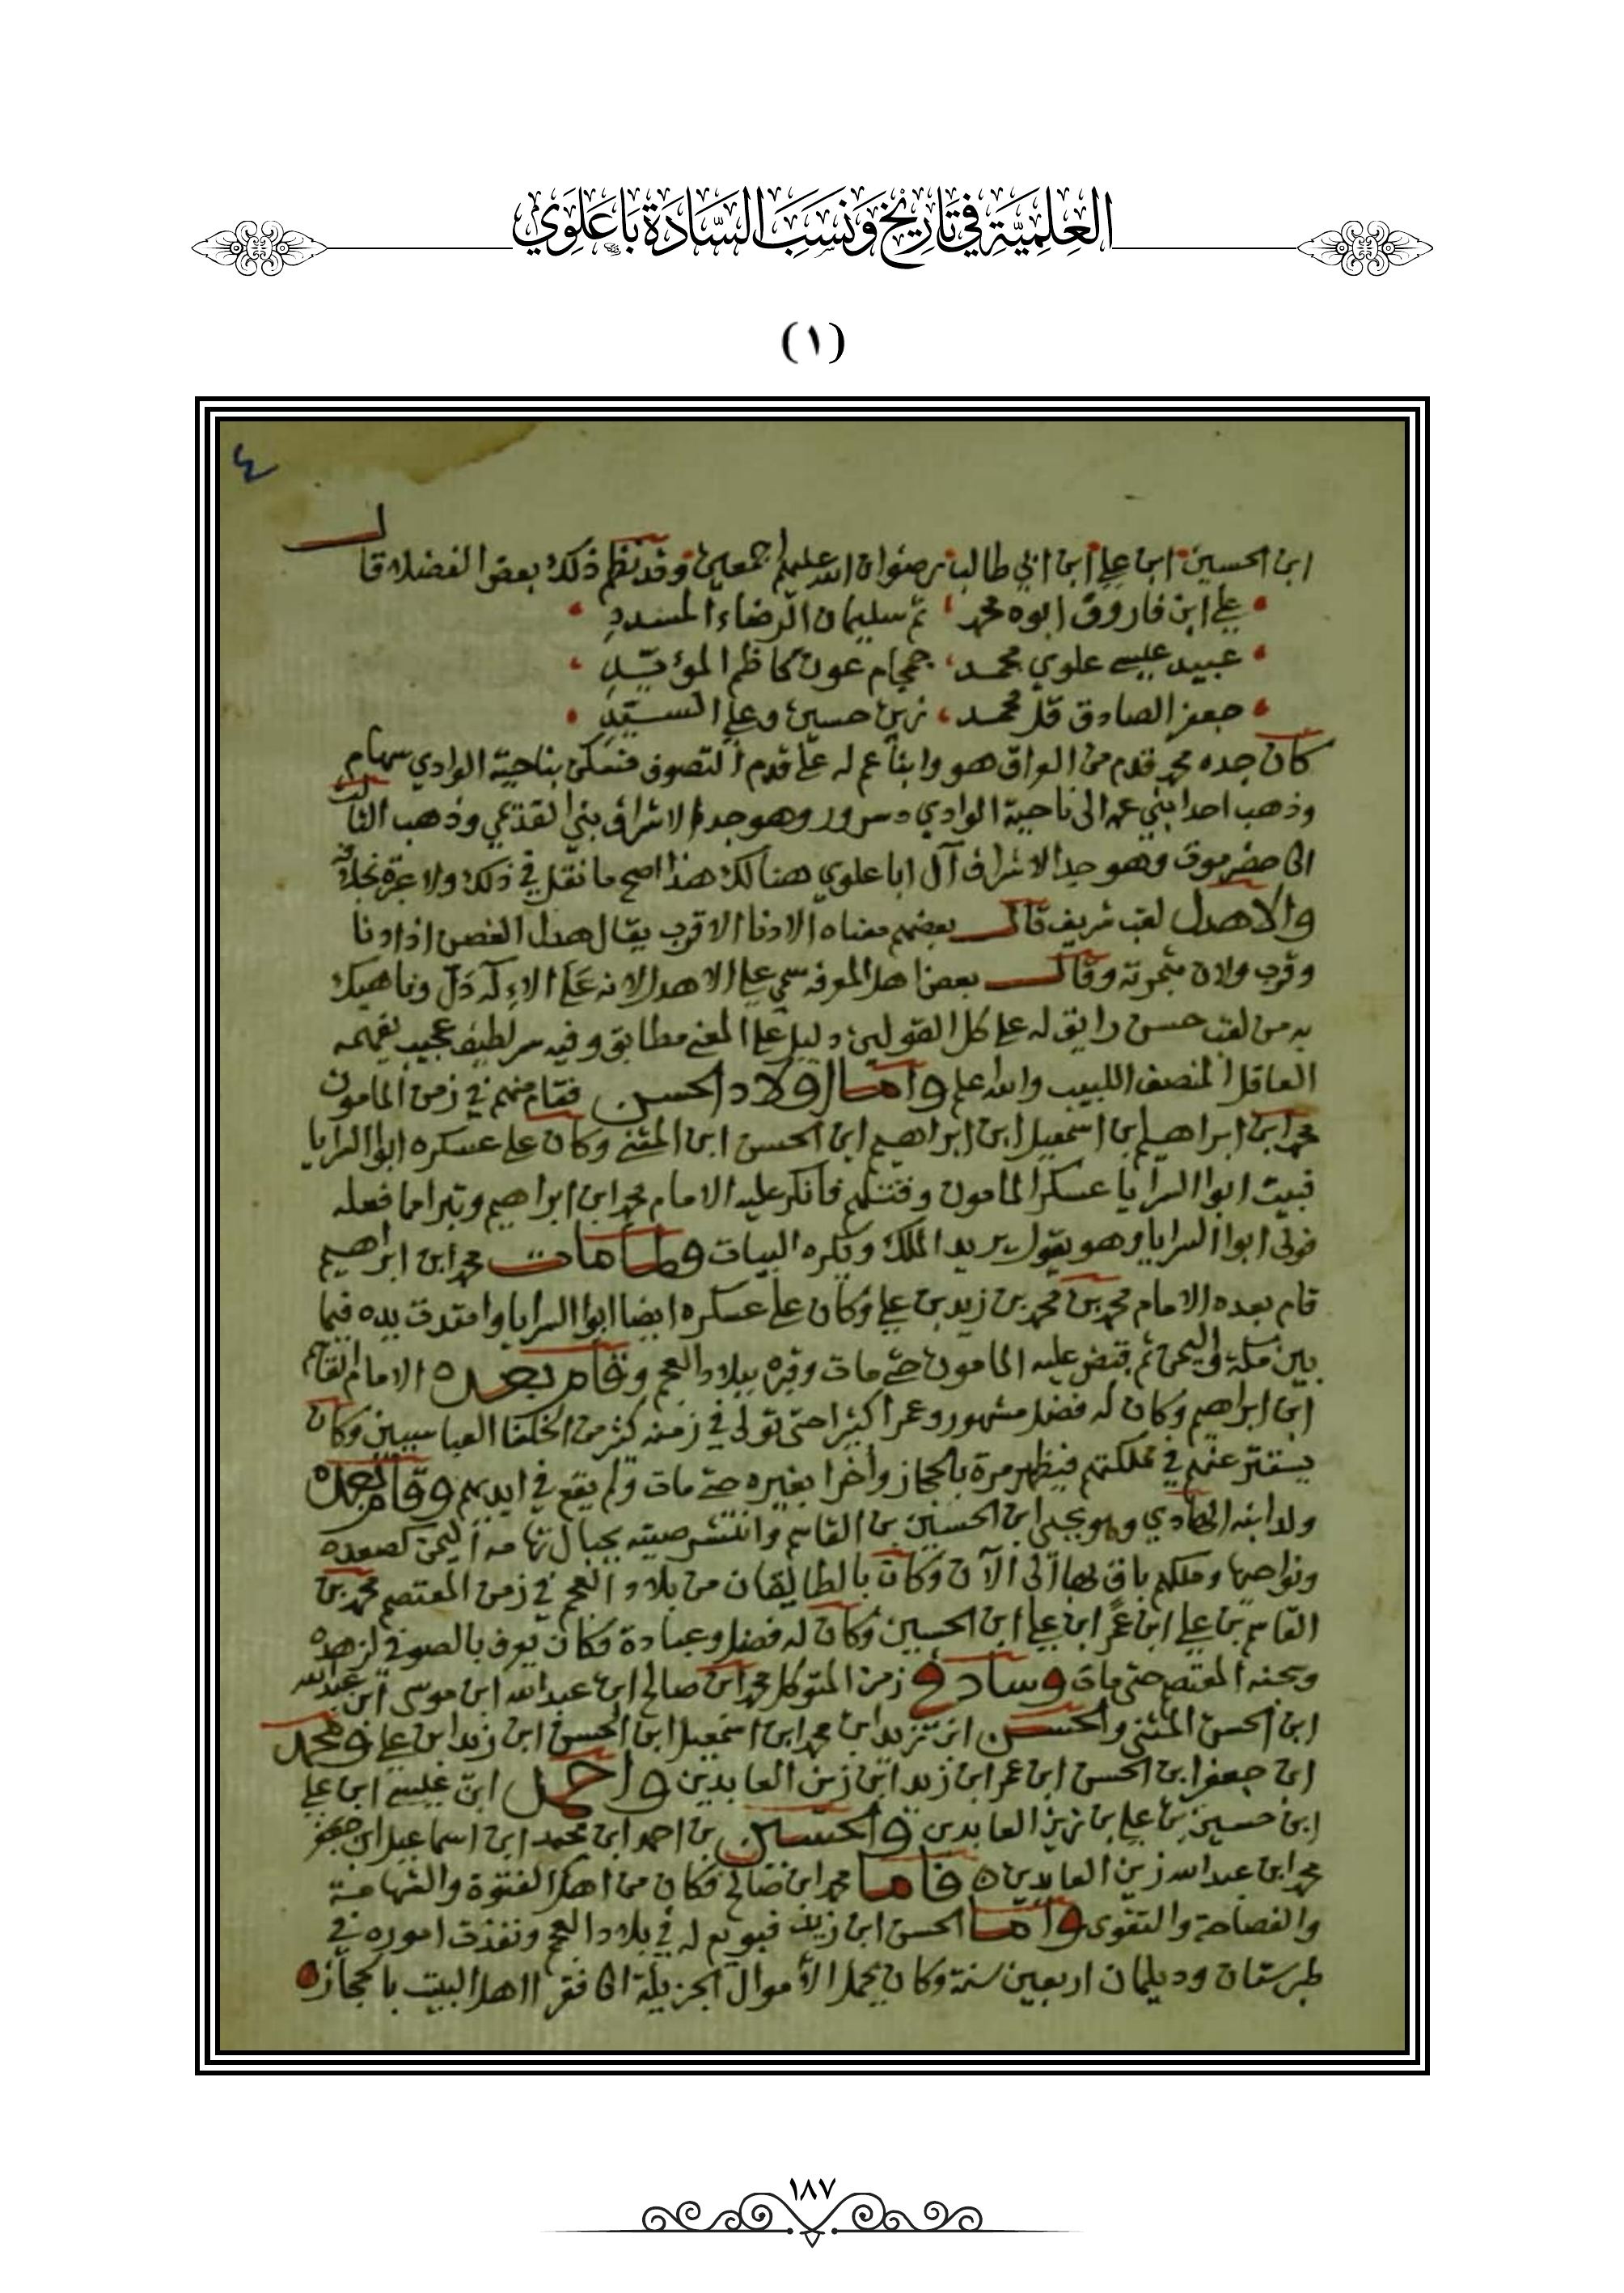 العِلْمِيَّةِ فِي تَارِيْخِ وَنَسَبِ السَّادَةِ بَاعَلَوِي
(١)
٤
ابن الحسين ابن علي ابن ابي طالب رضوان الله عليهم اجمعين وقد نظم ذلك بعض الفضلاء قال
علي ابن فاروق ابوه محمد ثم سليمان الرضاء المسدد
عبيد عيسى علوي محمد حمحام عون كاظم المؤيد
جعفر الصادق قل محمد زين حسين وعلي السيد
كان جده محمد قدم من العراق هو وابنا عم له على قدم التصوف فسكن بناحية الوادي سهام
وذهب احد ابني عمه الى ناحية الوادي سررد وهو جد الاشراف بني القديمي وذهب الثالث
الى حضرموت وهو جد الاشراف آل ابا علوي هنالك هذا اصح ما نقل في ذلك ولا عبرة بخلافه
والاهدل لقب شريف قال بعضهم معناه الادنا الاقرب يقال هدل الغصن اذا دنا
وقرب ولان بثمرته وقال بعض اهل المعرفه سمي علي الاهدل لانه على الاله دل وناهيك
به من لقب حسن رايق له على كل القولين دليل على المعنى مطابق وفيه سر لطيف عجيب يفهمه
العاقل المنصف اللبيب والله اعلم واما اولاد الحسن فقام منهم في زمن المامون
محمد ابن ابراهيم بن اسمعيل ابن ابراهيم ابن الحسن ابن المثنى وكان على عسكره ابوا السرايا
فبيت ابوا السرايا عسكر المامون وقتلهم فانكر عليه الامام محمد ابن ابراهيم وتبرا مما فعله
فولى ابوا السرايا وهو يقول يريد الملك ويكره البيات ولما مات محمد ابن ابراهيم
قام بعده الامام محمد بن محمد بن زيد بن علي وكان على عسكره ايضا ابوا السرايا وامتدت يده فيما
بين مكة واليمن ثم قبض عليه المامون حتى مات وقبره ببلاد العجم وقام بعده الامام القاسم
ابن ابراهيم وكان له فضل مشهور وعمر اكثيرا حتى تولى في زمنه كثير من الخلفا العباسيين وكان
يستتر عنهم في مملكتهم فيظهر مرة بالحجاز وأخرا بغيره حتى مات ولم يقع في ايديهم وقام بعده
ولد ابنه الهادي وهو يحيى ابن الحسين بن القاسم وانتشر صيته بجبال تهامه اليمن كصعده
ونواحيها وملكهم باق بها الى الآن وكان بالطالقان من بلاد العجم في زمن المعتصم محمد بن
القاسم بن علي ابن عمر ابن علي ابن الحسين وكان له فضل وعبادة وكان يعرف بالصوفي لزهده
وسجنه المعتصم حتى مات وساد في زمن المتوكل محمد ابن صالح ابن عبد الله ابن موسى ابن عبد الله
ابن الحسن المثنى والحسن ابن زيد ابن محمد ابن اسمعيل ابن الحسن ابن زيد ابن علي ومحمد
ابن جعفر ابن الحسن ابن عمر ابن زيد ابن زين العابدين واحمد ابن عيسى ابن علي
ابن حسين بن علي بن زين العابدين والحسين بن احمد ابن محمد ابن اسماعيل ابن جعفر
محمد ابن عبد الله زين العابدين ه فاما محمد ابن صالح فكان من اهل الفتوة والشهامة
والفصاحة والتقوى واما الحسن ابن زيد فبويع له في بلاد العجم ونفذت اموره في
طبرستان وديلمان اربعين سنة وكان يحمل الأموال الجزيلة الى فقرا اهل البيت بالحجاز
١٨٧